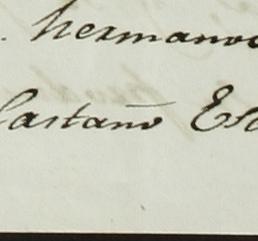 hermanos
Castaño Es